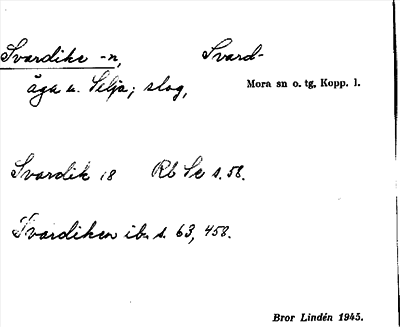 Svardike -n, Svard-
äga u. Silja; slog, Mora sn o. tg, Kopp. l.
Svardik 18 Rb Se s. 58.
Svardiken ib. s. 63, 458.
Bror Lindén 1945.